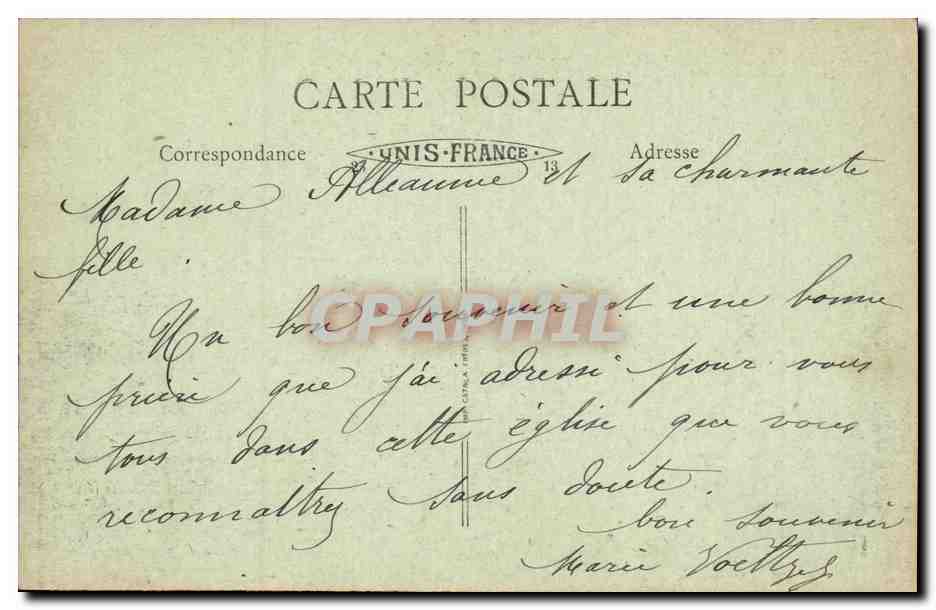 CARTE POSTALE
Correspondance
UNIS-FRANCE
Adresse
13
Madame Alleaume et sa charmante
fille.
Un bon souvenir et une bonne
prière que j'ai adressé pour vous
tous dans cette église que vous
reconnaîtrez sans doute.
bon souvenir
Marie
CPAPHIL
CATALA FRÈRES